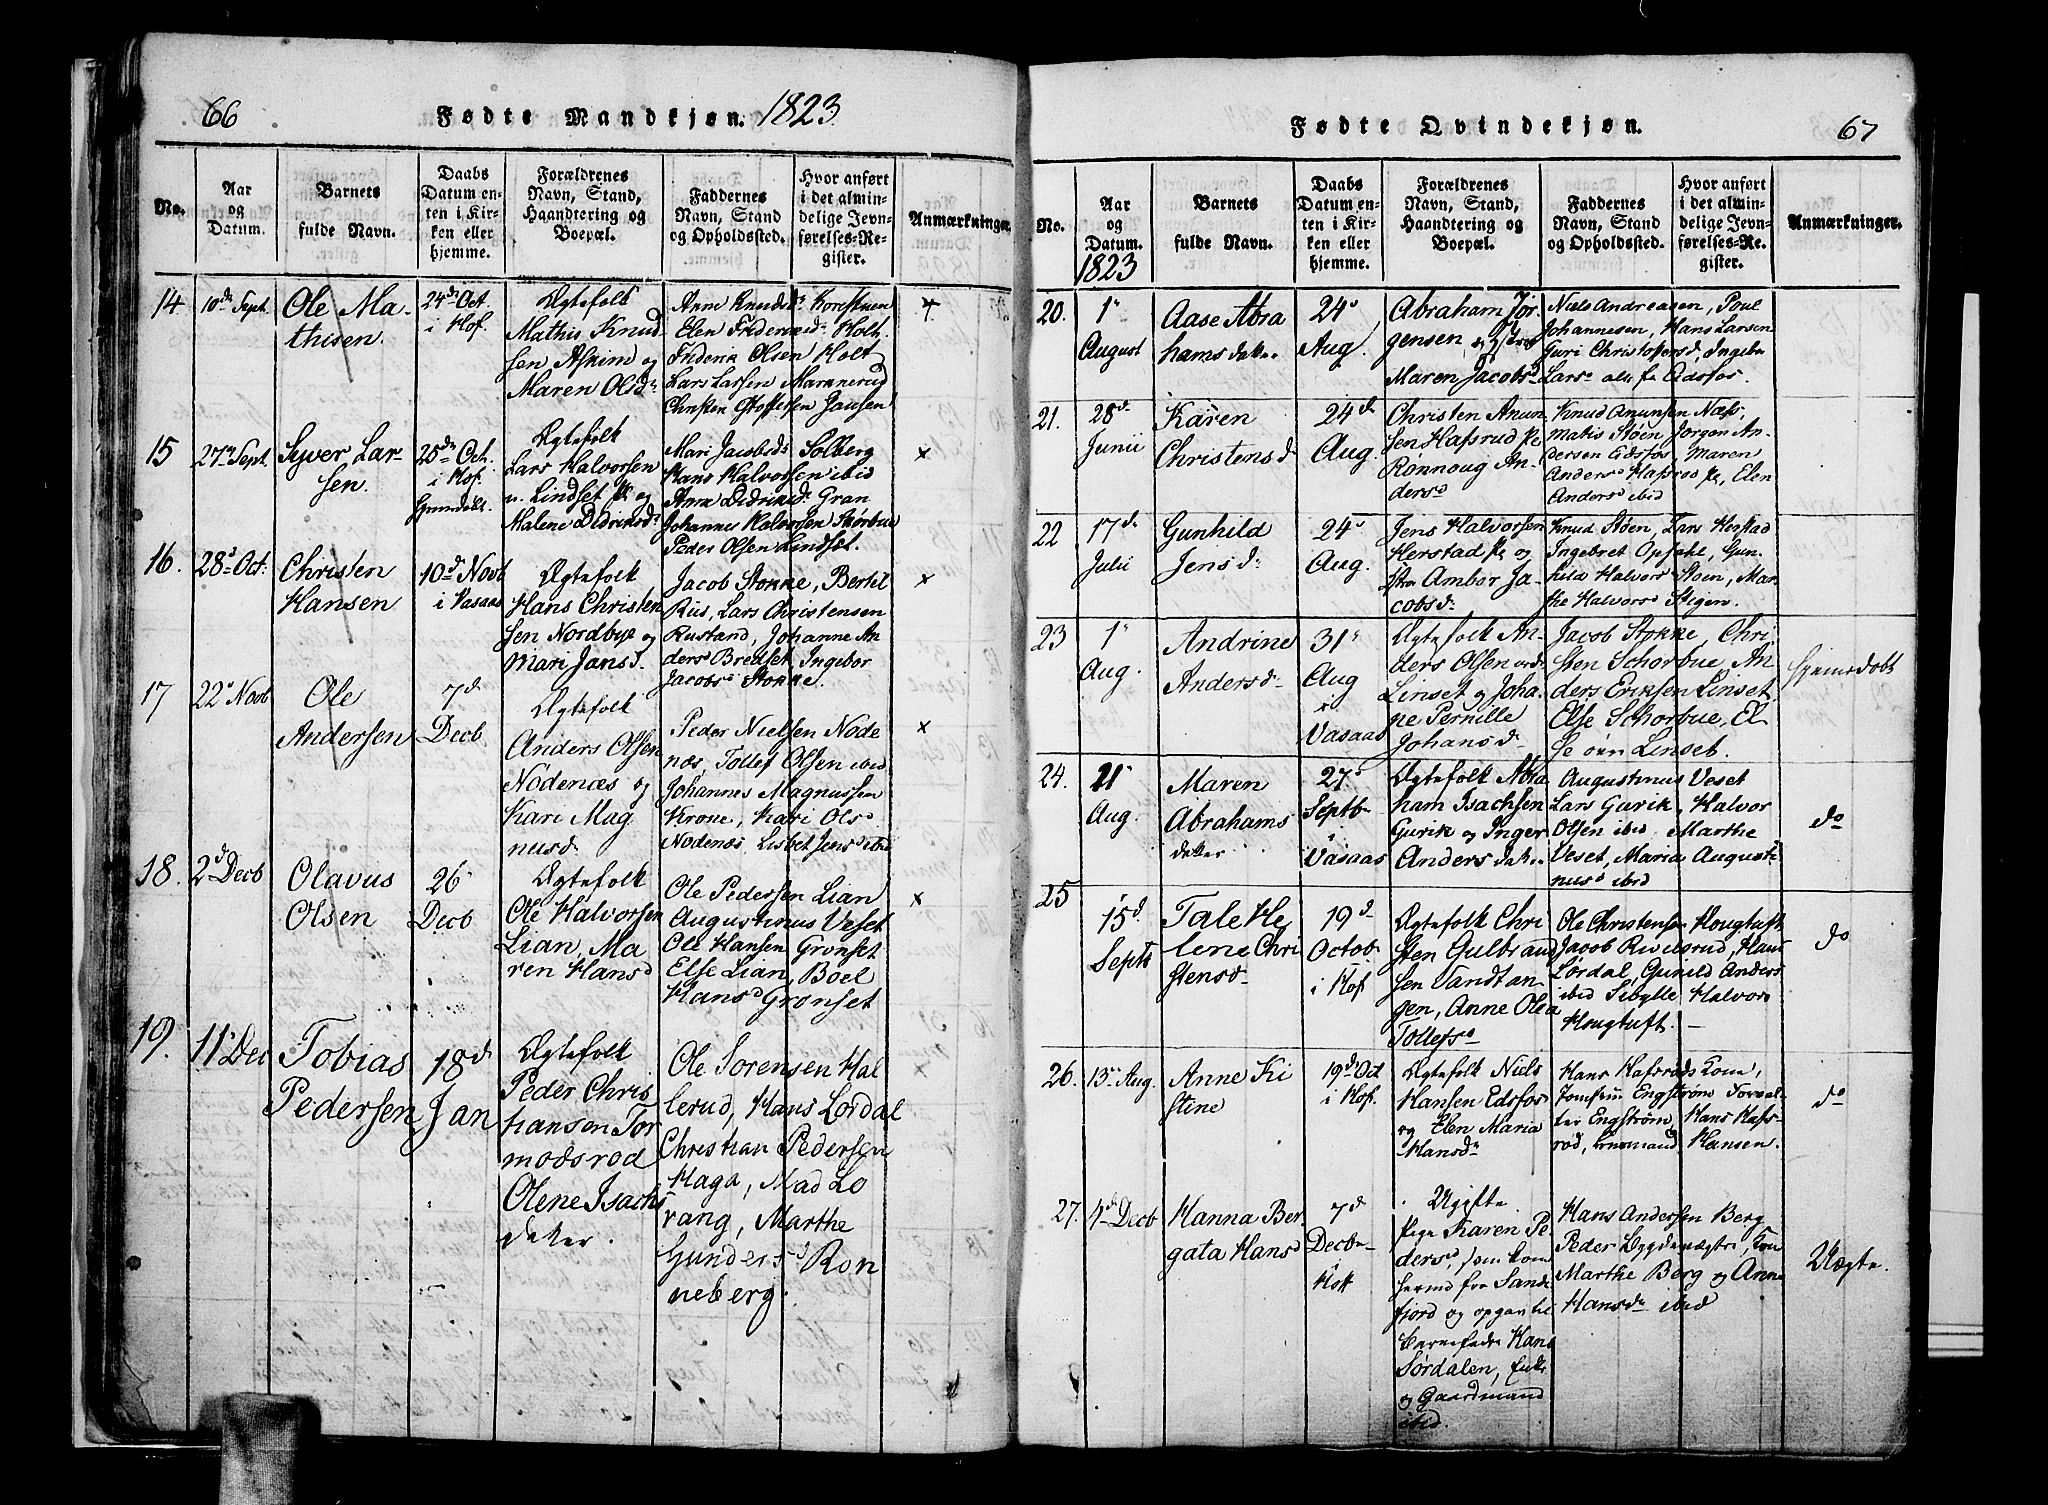 66
Fødte Mandkjøn. 1823
No.
Aar
og
Datum.
Barnets
fulde Navn.
Daabs
Datum en-
ten i Kir-
ken eller
hjemme.
Forældrenes
Navn, Stand,
Haandtering og
Boepæl.
Faddernes
Navn, Stand
og Opholdssted.
Hvor anført
i det almin-
delige Jevn-
førelses-Re-
gister.
Anmærkninger.
14
10de Sept.
Ole Ma-
thisen.
24de Oct.
i Hof.
Ægtefolk
Mathis Knud
sen Askim og
Maren Olsdr
Anne Knudsdr Korestuen
Elen Frideriksdr Holt
Friderik Olsen Holt
Lars Larsen Mannerud
Christen Jansen
+
15
27de Sept.
Syver Lar-
sen.
25de Oct.
i Hof.
Ægtefolk
Lars Halvorsen
Lindset og
Malene Didriksdr
Mari Jacobsdr Solberg
Hans Halvorsen ibid
Anne Didriksdr Gran
Johannes Halvorsen Skorbue
Peder Olsen Lindset.
x
16.
28d Oct:
Christen
Hansen
10d Novb
i Vasaas
Ægtefolk
Hans Christen
sen Nordbye og
Mari Jansd.
Jacob Stokke, Bertel
Rus, Lars Christensen
Rustand, Johanne An
dersd Bredset, Ingebor
Jacobsd Stokke.
x
17
22d Novb
Ole
Andersen
7d
Decb
Ægtefolk
Anders Olsen
Nodenæs og
Kari Mag
nusd
Peder Nielsen Node
næs, Tollef Olsen ibid
Johannes Magnussen
Krone, Kari Olsd
Nodenæs, Lisbet Jensd ibid
x
18.
2d Decb
Olavus
Olsen
26
Decb
Ægtefolk
Ole Halvorsen
Lian, Ma
ren Hansd
Ole Pedersen Lian
Augustinus Veset
Ole Hansen Gronset
Else Lian, Boel
Hansd Gronset
x
19.
11d Dec
Tobias
Pedersen
18d
Jan
Ægtefolk
Peder Chris
hansen Tor
modsrod
Olene Isachs
datter.
Ole Sorensen Hal
lerud, Hans Lordal
Christian Pedersen
Haga, Mad Lo
rang, Marthe
Gundersd Ron
neberg.
x
67
Fødte Qvindekjøn.
No.
Aar
og
Datum.
1823
Barnets
fulde Navn.
Daabs
Datum en-
ten i Kir-
ken eller
hjemme.
Forældrenes
Navn, Stand,
Haandtering og
Boepæl.
Faddernes
Navn, Stand
og Opholdssted.
Hvor anført
i det almin-
delige Jevn-
førelses-Re-
gister.
Anmærkninger.
20.
1
August
Aase Abra
hams datter
24d
Aug.
Abraham Jør
gensen og
Maren Jacobsd
Niels Andreasen, Poul
Johannesen, Hans Larsen
Guri Christophersd, Ingebor
Larsd alle fra Eidsfos.
21.
28d
Junii
Karen
Christensd
24d
Aug.
Christen Anun
sen Hafsrud
Rønnoug An
dersd
Knud Anunsen Næss,
Matis Støen, Jørgen An-
dersen Eidsfos, Maren
Andersd Hafsrod, Elen
Andersd ibid
22
17d
Julii
Gunhild
Jensd
24d
Aug.
Jens Halvorsen
Herstad og
Ambor Ja
cobsd
Knud Støen, Lars Herstad
Ingebret Opsahl, Gun-
hild Halvorsd Støen, Mar
the Halvorsd Stigen.
23
1
Aug.
Andrine
Andersd
31
Aug
i
Vasaas
Ægtefolk An-
ders Olsen
Linset og Joha
ne Pernille
Johansd
Jacob Stokke, Chri
sten Schorbue, An
ders Eriksen Linset
Else Schorbue, El
se Linset.
hjemmedøbt
24.
21
Aug.
Maren
Abrahams
datter
27d
Septb
i
Vasaas
Ægtefolk Abra
ham Isachsen
Gurik og Inger
Anders datter
Augustinus Veset
Lars Gurik, Halvor
Olsen ibid, Marthe
Veset, Maria Augusti
nusd ibid
do
25
15d.
Septb
Tale He
lene Chri
stensd
19d
Octob
i Hof
Ægtefolk Chri
sten Gulbrand
sen Tandtan
gen, Anne Olea
Tollefsd
Ole Christensen Hougtuft
Jacob Ruelsrud, Hans
Lørdal, Gunild Andersd
ibid Sibylle Halvors
Hougtuft.
do
26.
13de Aug.
Anne Ki
stine
19de Oct
i Hof.
Ægtefolk Niels
Hansen Edsfos
og Elen Maria
Hansdr
Hans Hafsrods Kone,
Jomfru Engstrøm, Forval
ter Engstrøm, Hans Hafs-
rod, Hansen.
do
27.
4de Decb
Hanna Ber
gata Hansd
7d
Decb
Hoff
Ugifte
Pige Karen Pe
dersd, som kom
hermed fra Sande
fjord og opgav til
Barnefader Hans
Sørdalen,
og Gaardmand
ibid.
Hans Andersen Berg
Peder
Marthe Berg og Anne
Hansdr ibid
Uægte.